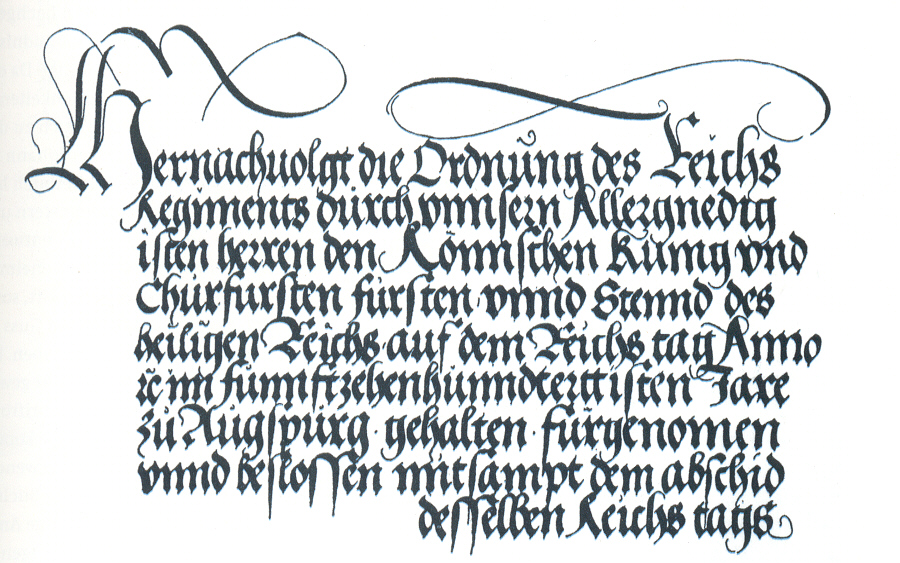 Hernachuolgt die Ordnŭng des Reichs
Regiments dŭrch vnnsern Allergnedig
isten herren den Römischen Kŭnig vnd
Chŭrfŭrsten fŭrsten vnnd Stennd des
heiligen Reichs auf dem Reichs tag Anno
ꝛc im fŭnnfftzehenhŭnndert isten Jare
zŭ Aŭgspŭrg gehalten fŭrgenomen
vnnd beslossen mitsampt dem abschid
desselben Reichs tags